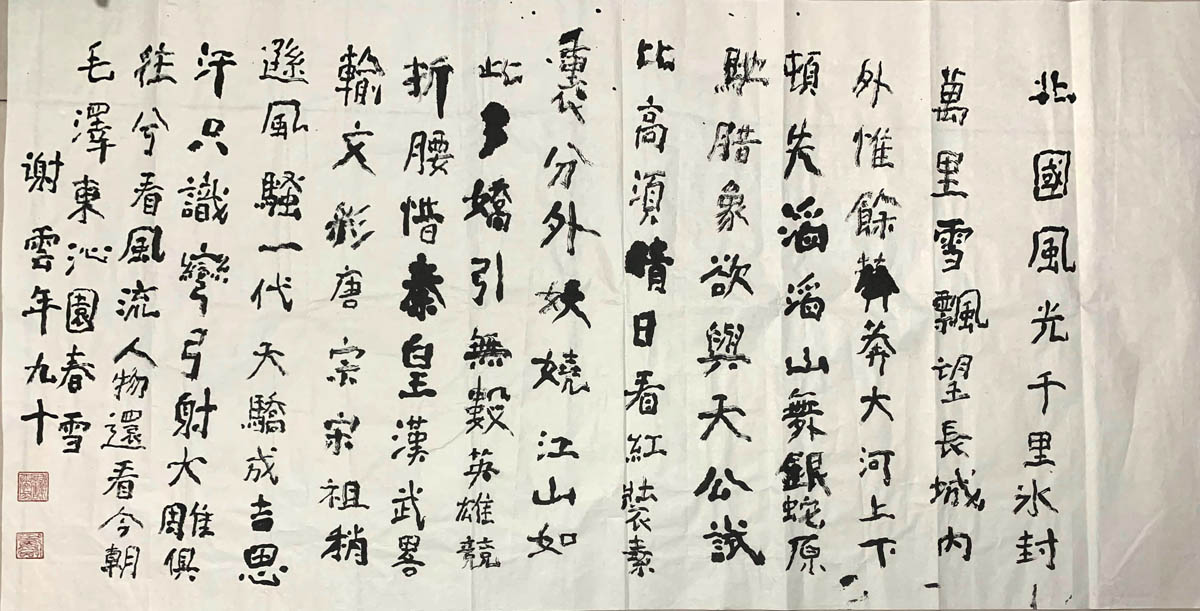 北國風光千里冰封
萬里雪飄望長城内
外惟餘莽莽大河上下
頓失滔滔山舞銀蛇原
馳腊象欲與天公試
比高須晴日看紅裝素
裹分外妖嬈江山如
此多嬌引無數英雄競
折腰惜秦皇漢武畧
輸文彩唐宗宋祖稍
遜風騷一代天驕成吉思
汗只識彎弓射大雕俱
往兮看風流人物還看今朝
毛澤東沁園春雪
謝雲年九十